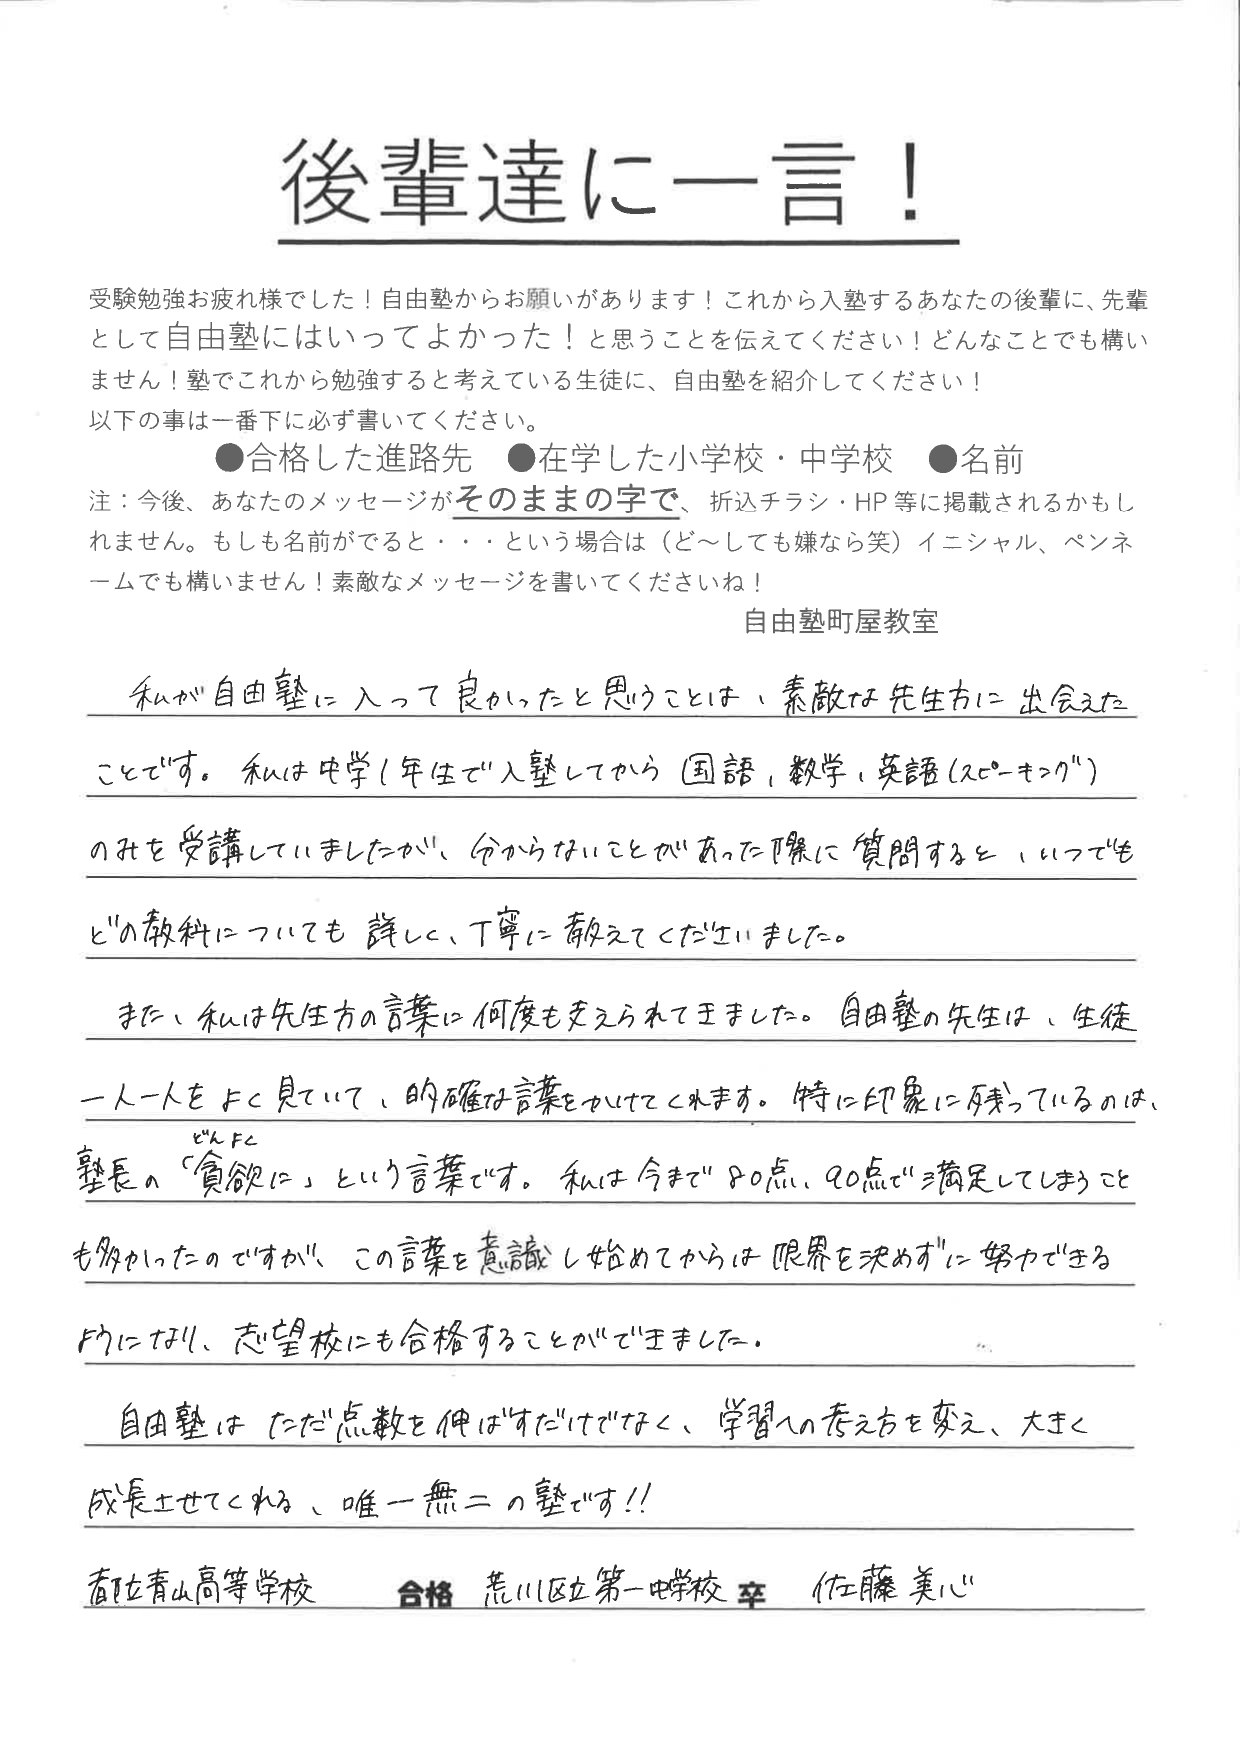 後輩達に一言！
受験勉強お疲れ様でした！自由塾からお願いがあります！これから入塾するあなたの後輩に、先輩
として自由塾にはいってよかった！と思うことを伝えてください！どんなことでも構い
ません！塾でこれから勉強すると考えている生徒に、自由塾を紹介してください！
以下の事は一番下に必ず書いてください。
●合格した進路先　●在学した小学校・中学校　●名前
注：今後、あなたのメッセージがそのままの字で、折込チラシ・HP 等に掲載されるかもし
れません。もしも名前がでると・・・という場合は（ど～しても嫌なら笑）イニシャル、ペンネ
ームでも構いません！素敵なメッセージを書いてくださいね！
自由塾町屋教室
私が自由塾に入って良かったと思うことは、素敵な先生方に出会えた
ことです。私は中学1年生で入塾してから国語，数学，英語(スピーキング)
のみを受講していましたが、分からないことがあった際に質問すると、いつでも
どの教科についても詳しく、丁寧に教えてくださいました。
また、私は先生方の言葉に何度も支えられてきました。自由塾の先生は、生徒
一人一人をよく見ていて、的確な言葉をかけてくれます。特に印象に残っているのは、
どんよく
塾長の「貪欲に」という言葉です。私は今まで80点、90点で満足してしまうこと
も多かったのですが、この言葉を意識し始めてからは限界を決めずに努力できる
ようになり、志望校にも合格することができました。
自由塾はただ点数を伸ばすだけでなく、学習への考え方を変え、大きく
成長させてくれる、唯一無二の塾です!!
都立青山高等学校　合格　荒川区立第一中学校　卒　佐藤美心